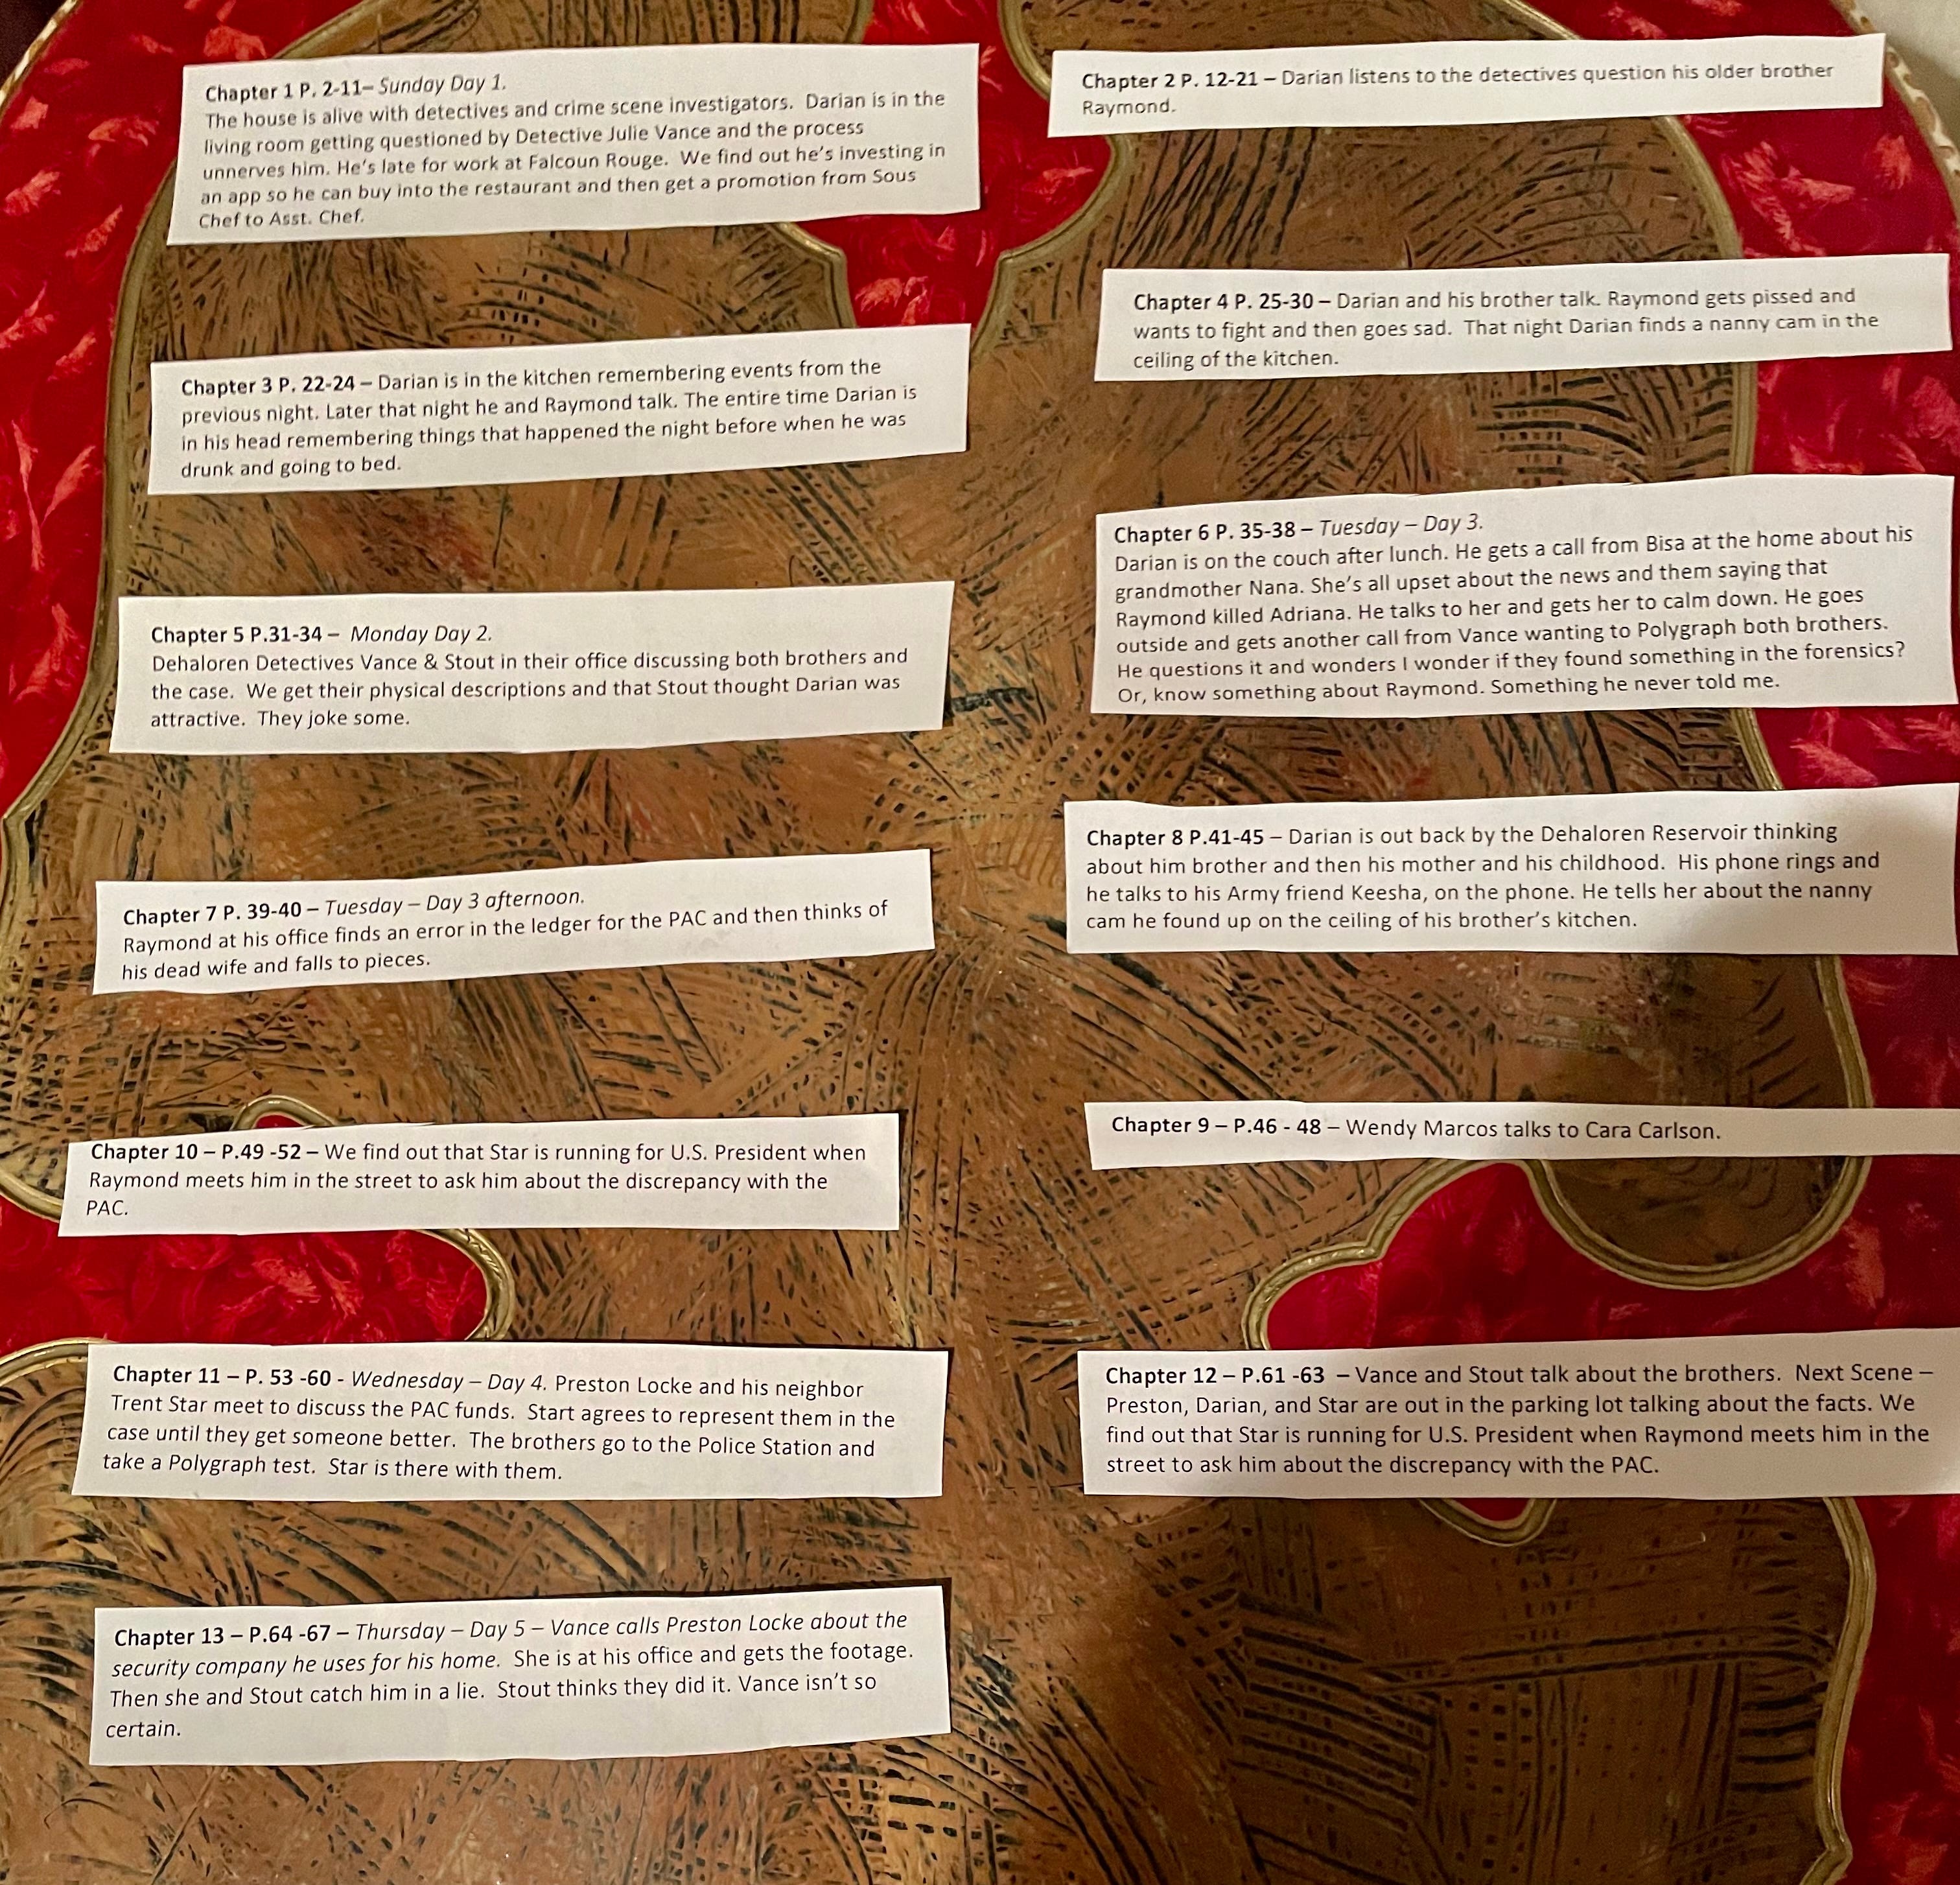 Chapter 1 P. 2-11– Sunday Day 1.
The house is alive with detectives and crime scene investigators. Darian is in the
living room getting questioned by Detective Julie Vance and the process
unnerves him. He's late for work at Falcoun Rouge. We find out he's investing in
an app so he can buy into the restaurant and then get a promotion from Sous
Chef to Asst. Chef.
Chapter 2 P. 12-21 – Darian listens to the detectives question his older brother
Raymond.
Chapter 3 P. 22-24 – Darian is in the kitchen remembering events from the
previous night. Later that night he and Raymond talk. The entire time Darian is
in his head remembering things that happened the night before when he was
drunk and going to bed.
Chapter 4 P. 25-30 – Darian and his brother talk. Raymond gets pissed and
wants to fight and then goes sad. That night Darian finds a nanny cam in the
ceiling of the kitchen.
Chapter 5 P.31-34 – Monday Day 2.
Dehaloren Detectives Vance & Stout in their office discussing both brothers and
the case. We get their physical descriptions and that Stout thought Darian was
attractive. They joke some.
Chapter 6 P. 35-38 – Tuesday – Day 3.
Darian is on the couch after lunch. He gets a call from Bisa at the home about his
grandmother Nana. She's all upset about the news and them saying that
Raymond killed Adriana. He talks to her and gets her to calm down. He goes
outside and gets another call from Vance wanting to Polygraph both brothers.
He questions it and wonders I wonder if they found something in the forensics?
Or, know something about Raymond. Something he never told me.
Chapter 7 P. 39-40 – Tuesday – Day 3 afternoon.
Raymond at his office finds an error in the ledger for the PAC and then thinks of
his dead wife and falls to pieces.
Chapter 8 P.41-45 – Darian is out back by the Dehaloren Reservoir thinking
about him brother and then his mother and his childhood. His phone rings and
he talks to his Army friend Keesha, on the phone. He tells her about the nanny
cam he found up on the ceiling of his brother's kitchen.
Chapter 9 – P.46 - 48 – Wendy Marcos talks to Cara Carlson.
Chapter 10 – P.49 -52 – We find out that Star is running for U.S. President when
Raymond meets him in the street to ask him about the discrepancy with the
PAC.
Chapter 11 – P. 53 -60 - Wednesday – Day 4. Preston Locke and his neighbor
Trent Star meet to discuss the PAC funds. Start agrees to represent them in the
case until they get someone better. The brothers go to the Police Station and
take a Polygraph test. Star is there with them.
Chapter 12 – P.61 -63 – Vance and Stout talk about the brothers. Next Scene –
Preston, Darian, and Star are out in the parking lot talking about the facts. We
find out that Star is running for U.S. President when Raymond meets him in the
street to ask him about the discrepancy with the PAC.
Chapter 13 – P.64 -67 – Thursday – Day 5 – Vance calls Preston Locke about the
security company he uses for his home. She is at his office and gets the footage.
Then she and Stout catch him in a lie. Stout thinks they did it. Vance isn't so
certain.